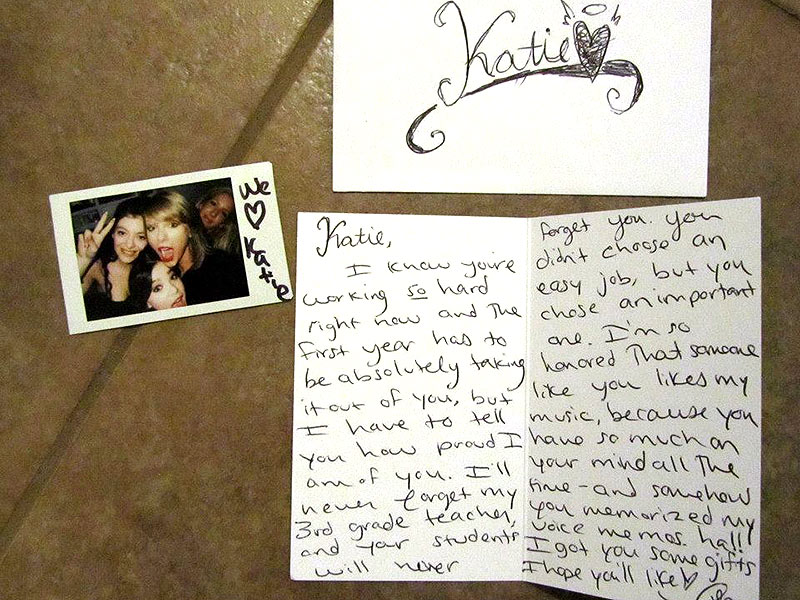 Katie
We
♡
Katie
Katie,
I know you're
working so hard
right now and The
first year has to
be absolutely taking
it out of you, but
I have to tell
you how proud I
am of you. I'll
never forget my
3rd grade teacher,
and your students
will never
forget you. you
didn't choose an
easy job, but you
chose an important
one. I'm so
honored That someone
like you likes my
music, because you
have so much on
your mind all The
time - and somehow
you memorized my
voice memos. ha!!
I got you some gifts
I hope you'll like ♡